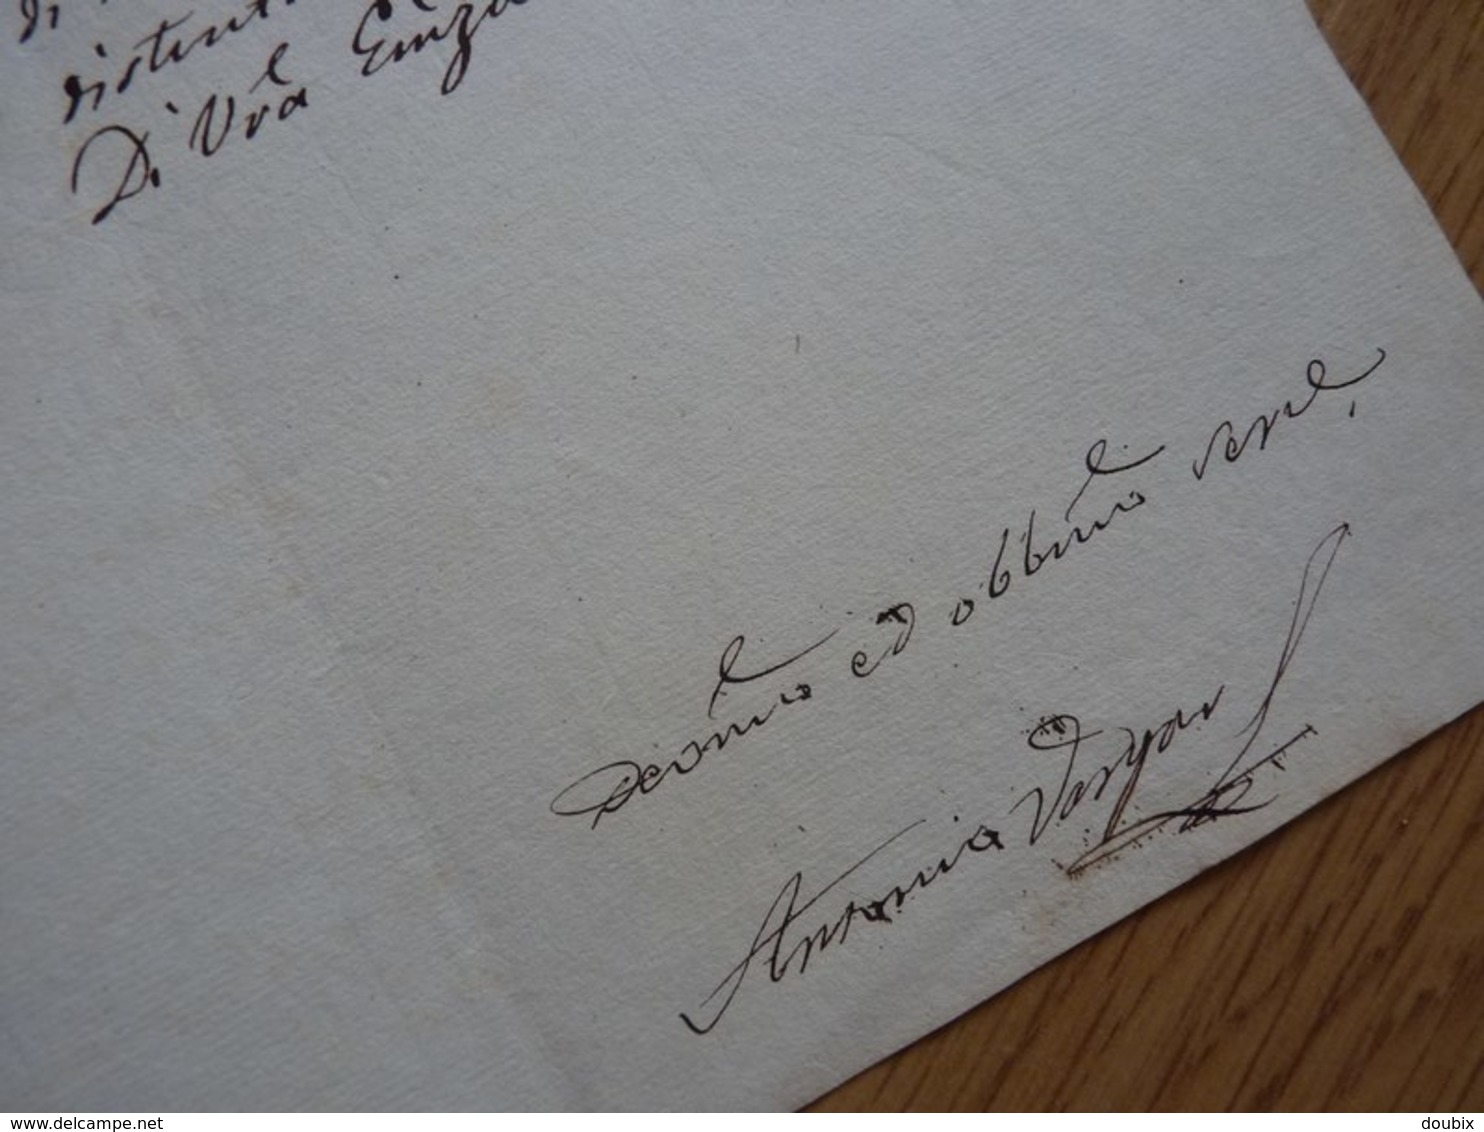 di
distent
Di Vra Emza
devmo ed obbmo serve,
Antonio Vargas
© delcampe.net
doubix